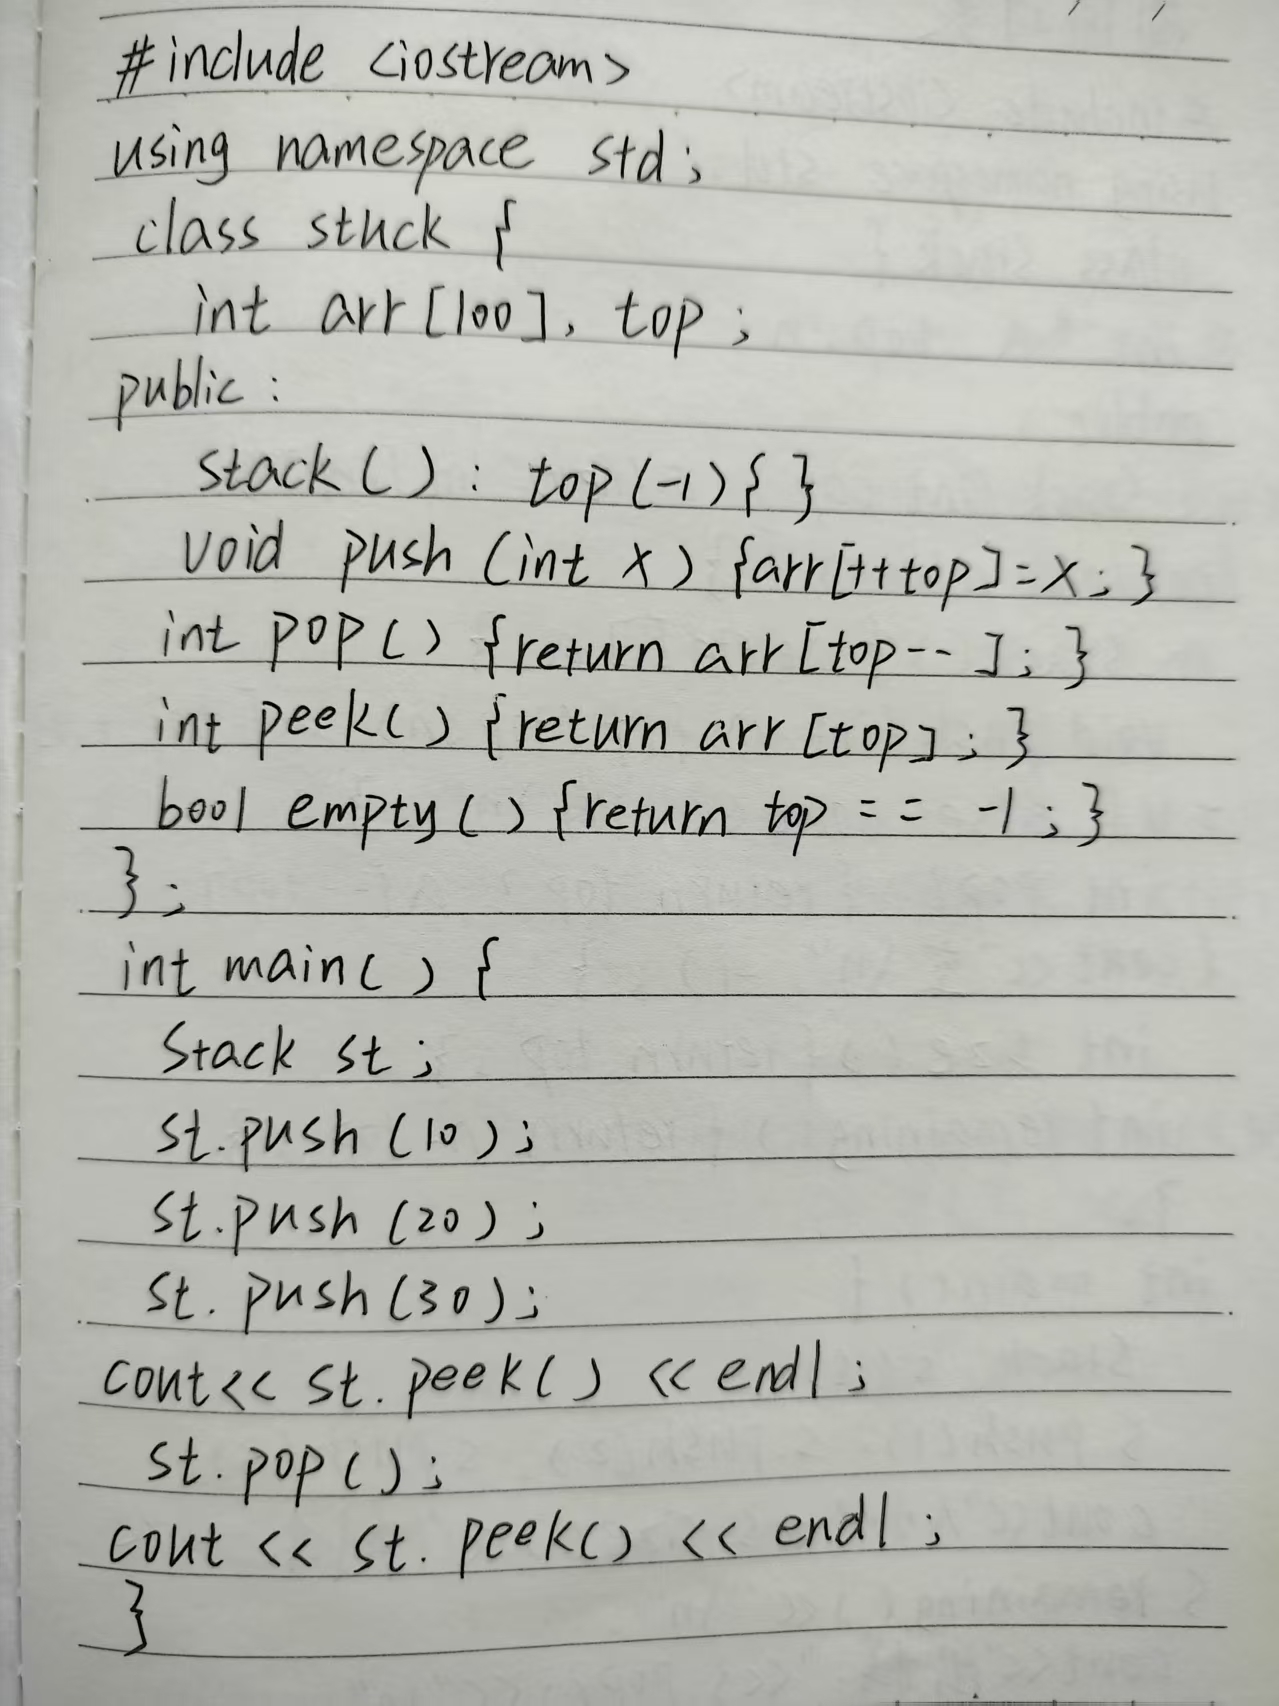 #include <iostream>
using namespace std;
class stuck {
int arr[100], top;
public:
stack() : top(-1){}
void push (int x) {arr[++top]=x;}
int pop() {return arr[top--];}
int peek() {return arr[top];}
bool empty() {return top == -1;}
};
int main() {
Stack st;
st.push(10);
st.push(20);
st.push(30);
cout<< st.peek() << endl;
st.pop();
cout << st.peek() << endl;
}